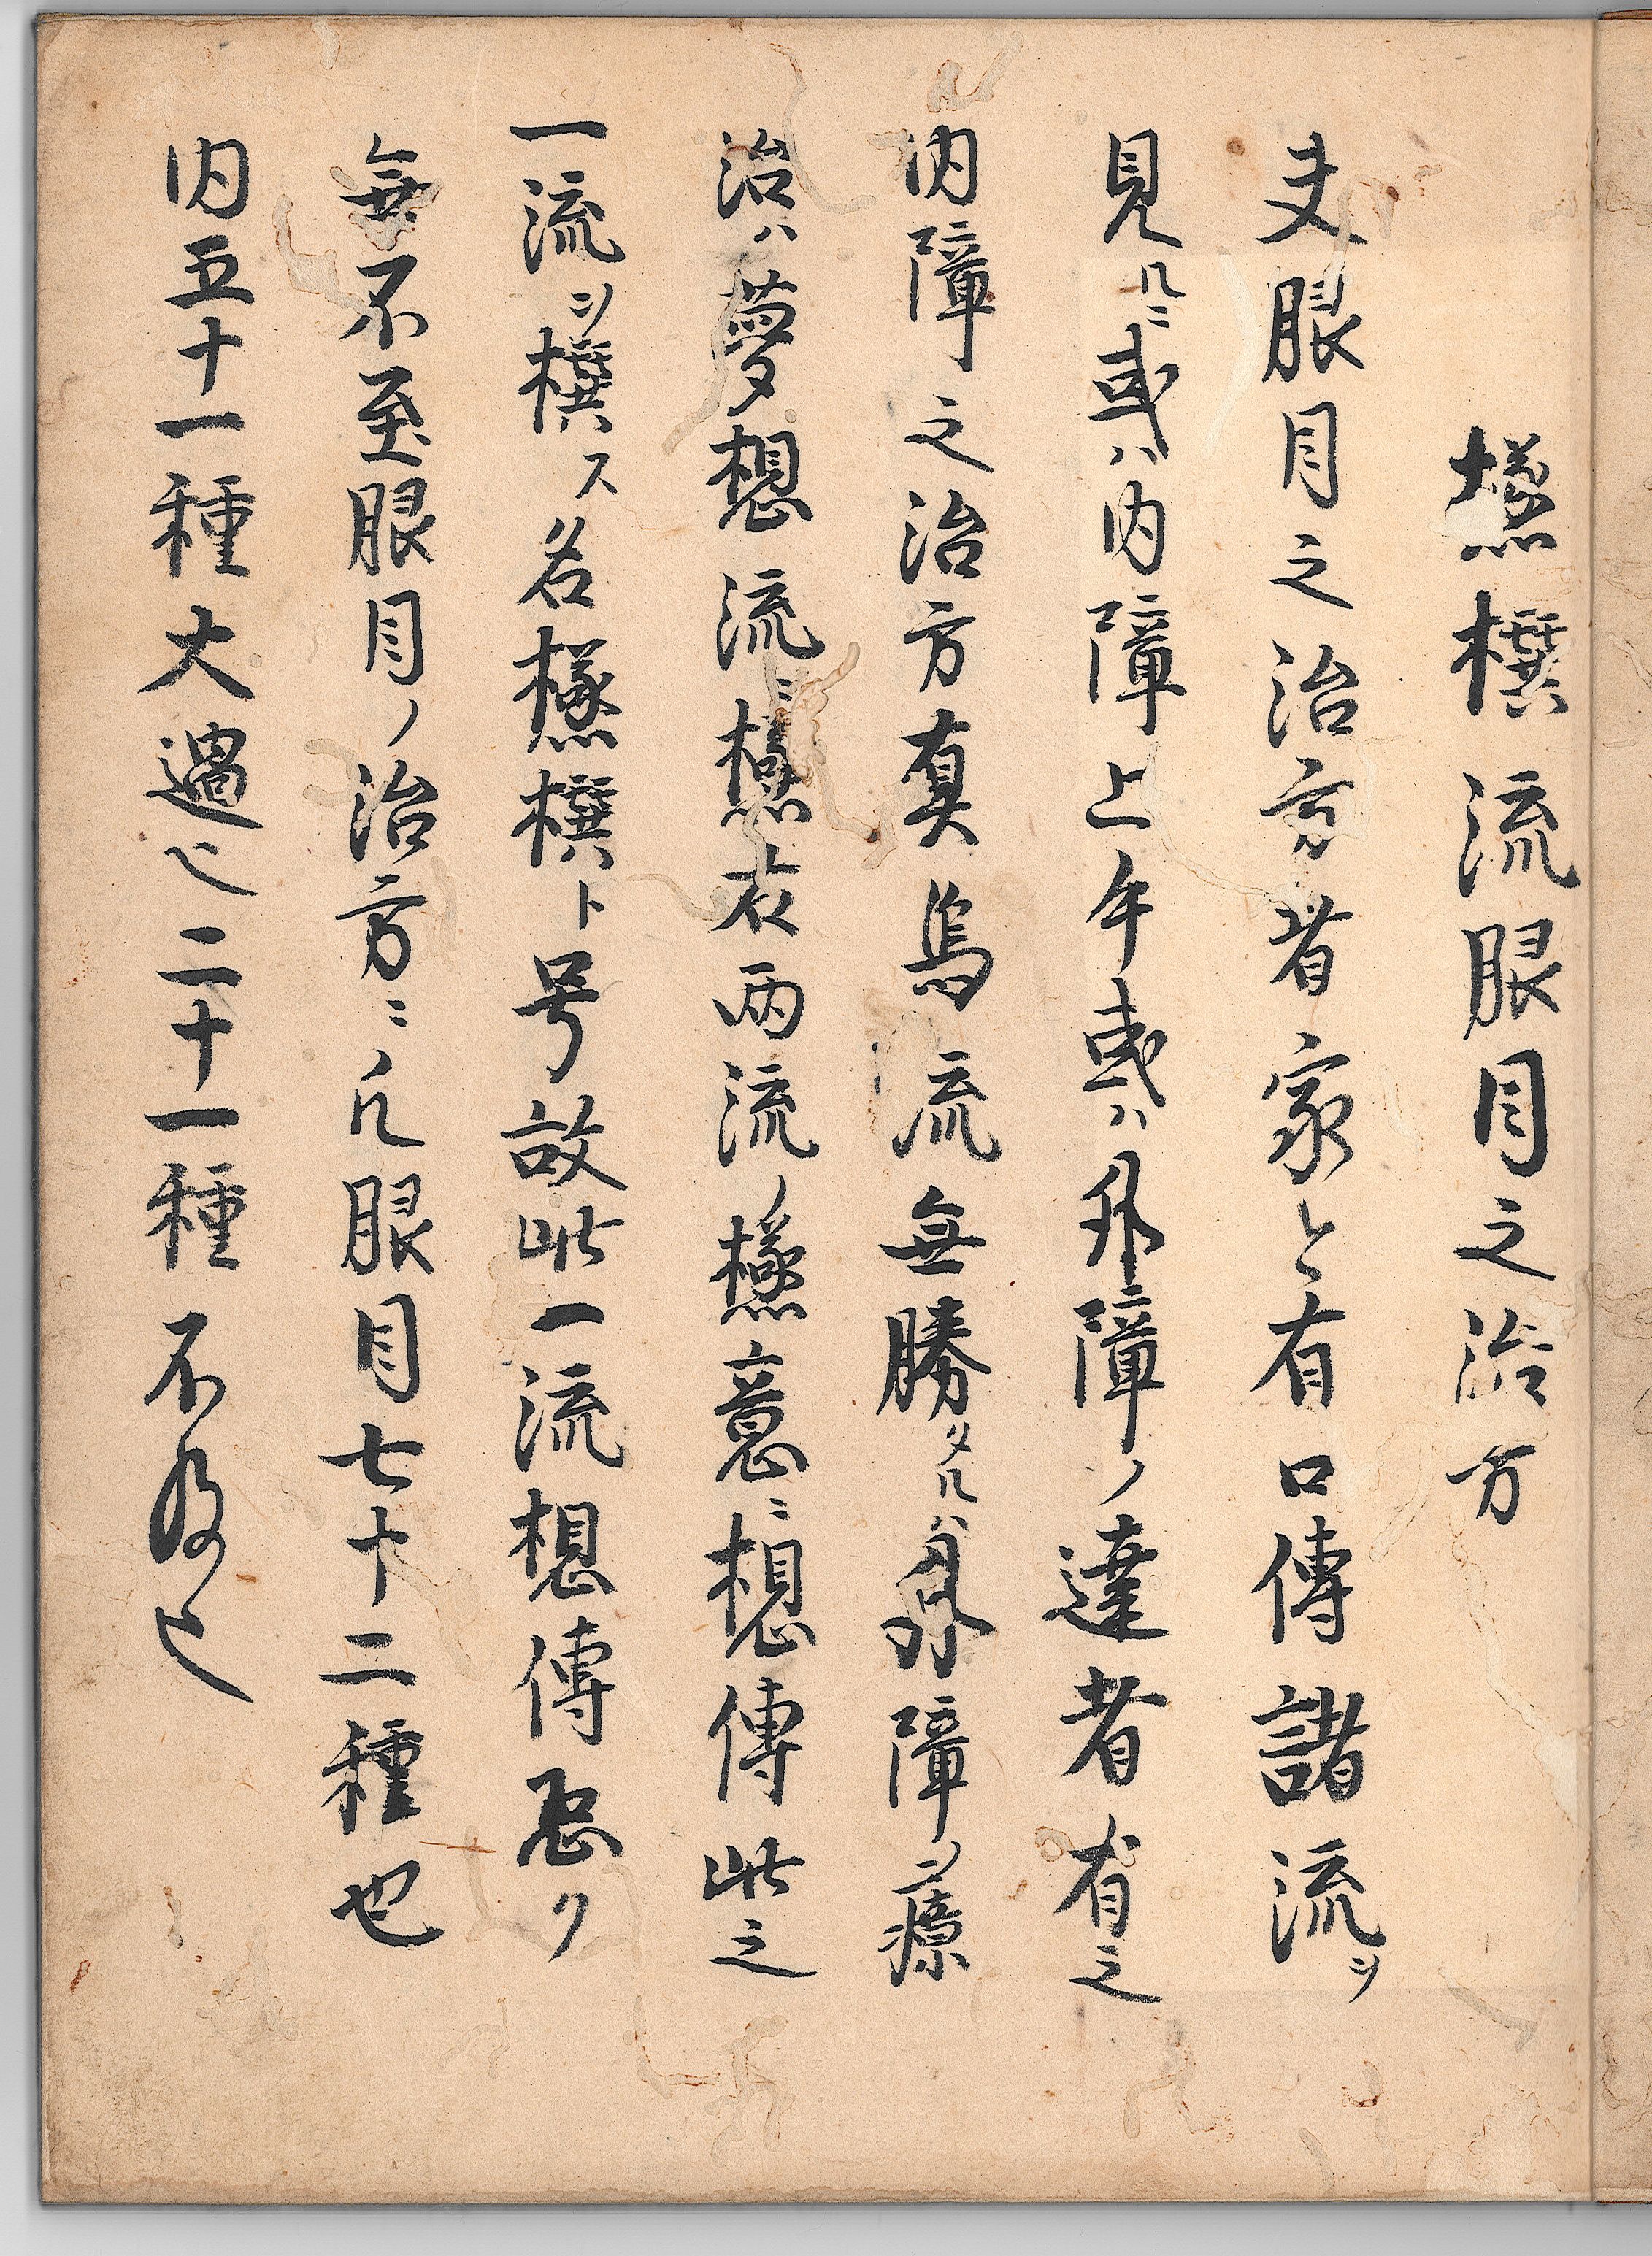 樣撰流眼目之治方
夫眼目之治方者家々有口傳諸流ヲ
見ルニ或ハ内障上手或ハ外障ノ達者有之
内障之治方真嶋流無勝タルハ外障ヲ療
治ハ夢想流ニ樣衣両流ノ樣意ニ想傳此之
一流ヲ撰ス名樣撰ト号故此一流想傳悉ク
無不至眼目ノ治方ニノ凡眼目七十二種也
内五十一種大過也二十一種不及也